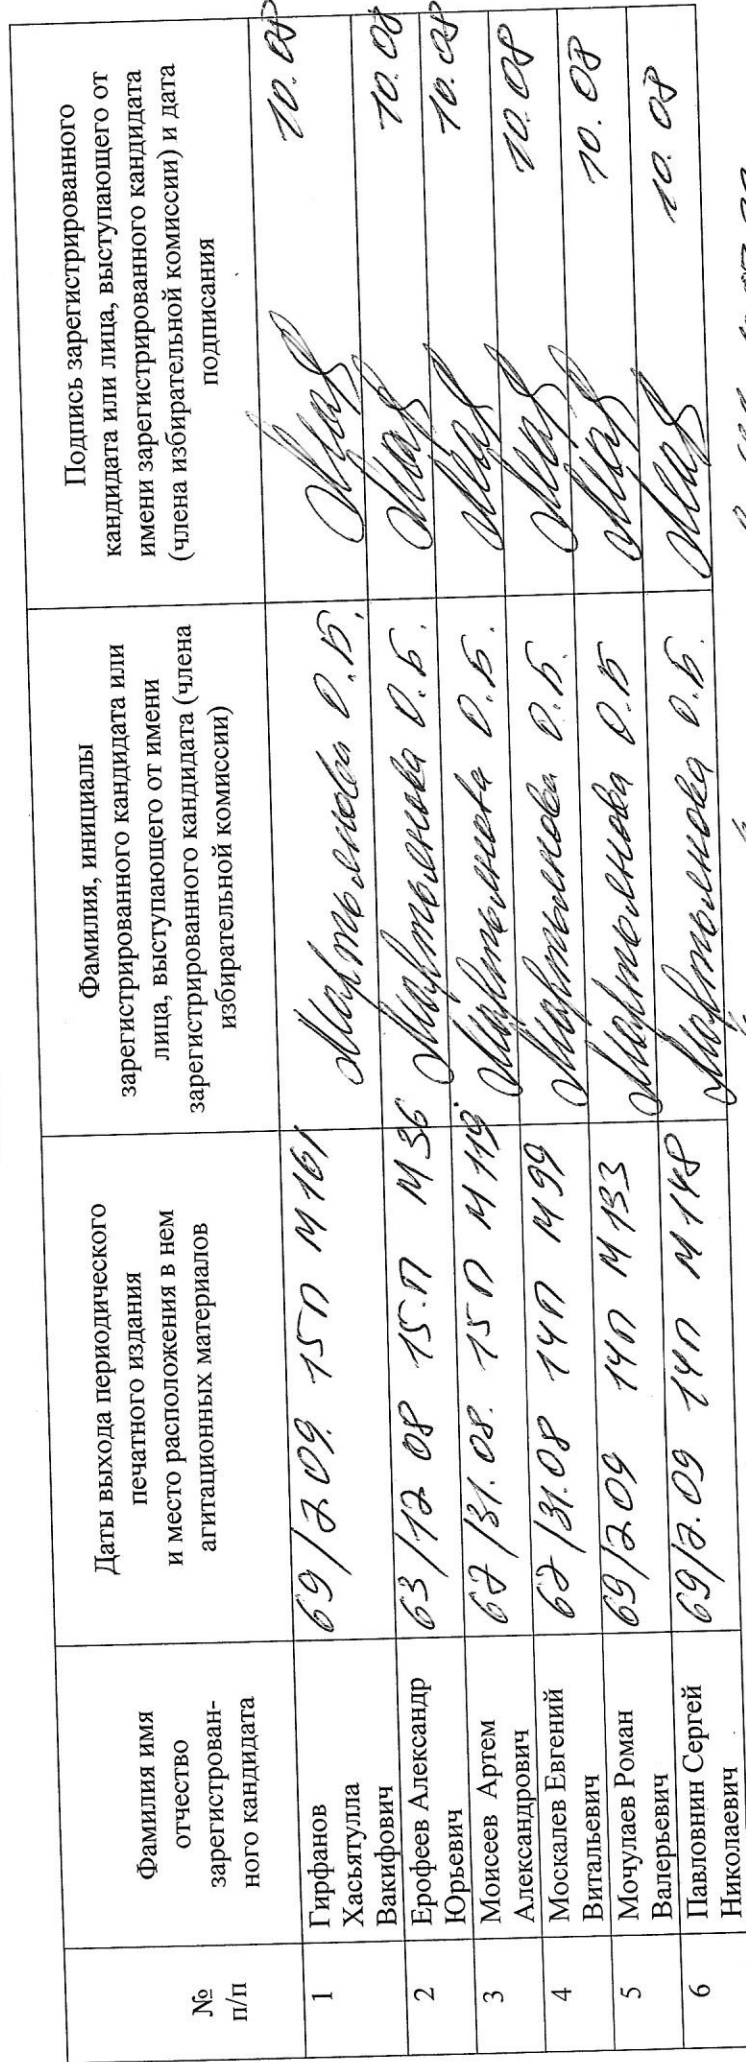 №
п/п
Фамилия имя
отчество
зарегистрирован-
ного кандидата
Даты выхода периодического
печатного издания
и место расположения в нем
агитационных материалов
Фамилия, инициалы
зарегистрированного кандидата или
лица, выступающего от имени
зарегистрированного кандидата (члена
избирательной комиссии)
Подпись зарегистрированного
кандидата или лица, выступающего от
имени зарегистрированного кандидата
(члена избирательной комиссии) и дата
подписания
1
Гирфанов
Хасьятулла
Вакифович
69/2.09. 15П М161
Мартьянова О.Б.
10.08
2
Ерофеев Александр
Юрьевич
63/12 08 15.П М36
Мартьянова О.Б.
10.08
3
Моисеев Артем
Александрович
67/31.08. 15П М119
Мартьянова О.Б.
10.08
4
Москалев Евгений
Витальевич
67/31.08 14П М99
Мартьянова О.Б.
10.08
5
Мочулаев Роман
Валерьевич
69/2.09 14П М133
Мартьянова О.Б
10.08
6
Павловнин Сергей
Николаевич
69/2.09 14П М148
Мартьянова О.Б.
10.08